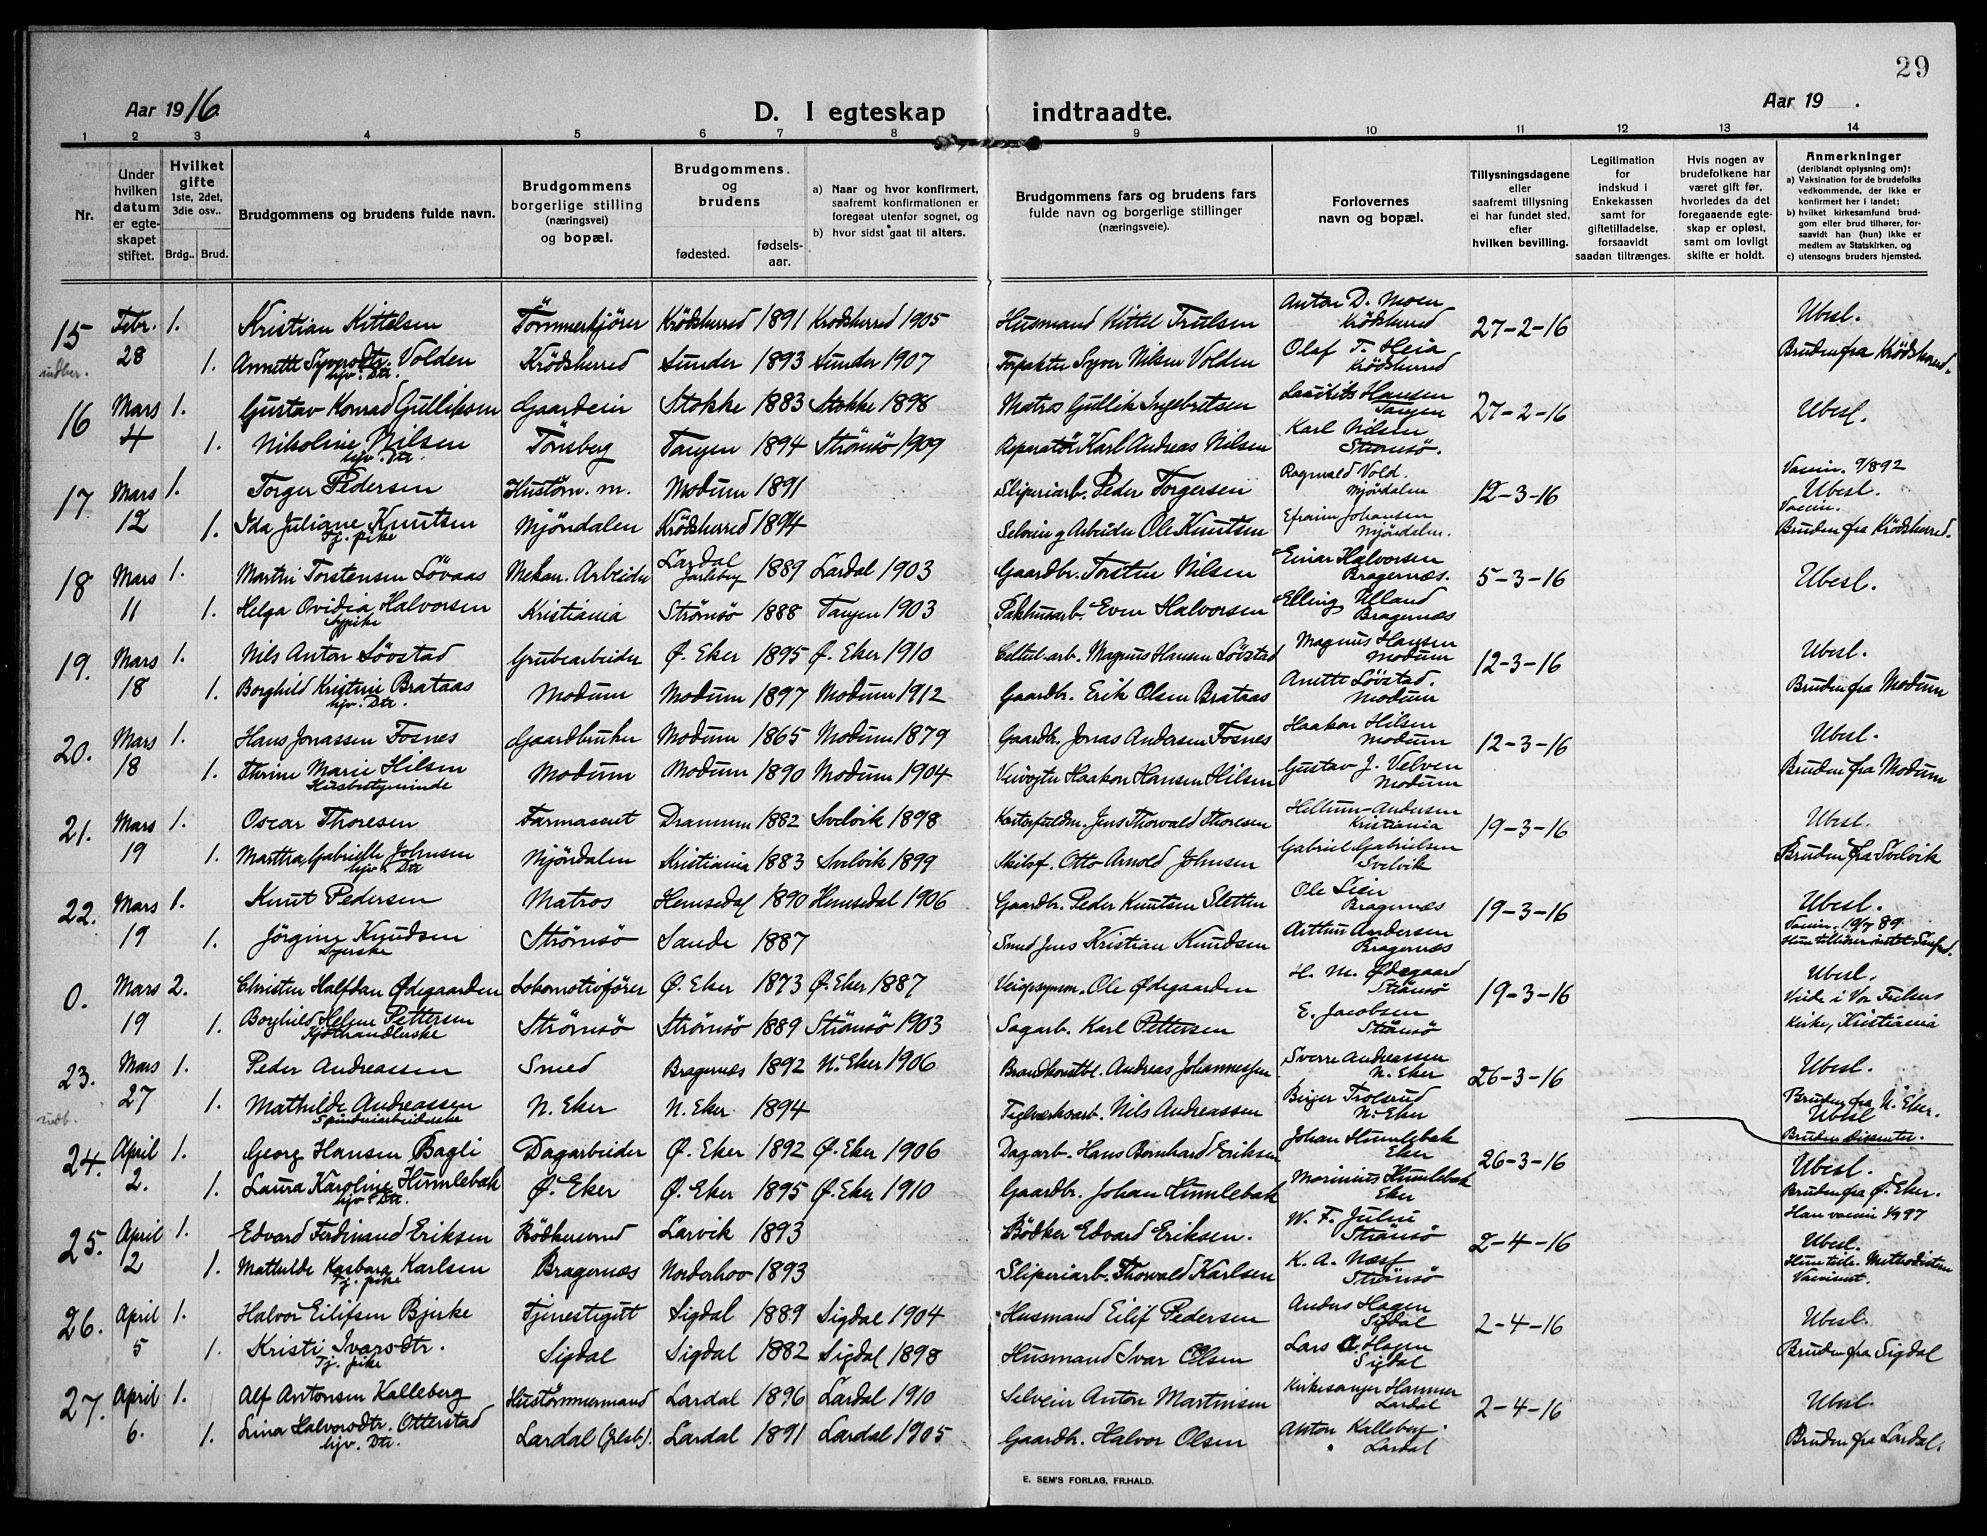 29
Aar 1916.
D. I egteskap indtraadte.
Aar 19 .
1 2 3 4 5 6 7 8 9 10 11 12 13 14
Nr.
Under hvilken datum er egteskapet stiftet.
Hvilket gifte 1ste, 2det, 3die osv..
Brdg.. Brud.
Brudgommens og brudens fulde navn.
Brudgommens borgerlige stilling (næringsvei) og bopæl.
Brudgommens. og brudens
fødested. fødselsaar.
a) Naar og hvor konfirmert, saafremt konfirmationen er foregaat utenfor sognet, og
b) hvor sidst gaat til alters.
Brudgommens fars og brudens fars fulde navn og borgerlige stillinger (næringsveie).
Forlovernes navn og bopæl.
Tillysningsdagene eller saafremt tillysning ei har fundet sted, efter hvilken bevilling.
Legitimation for indskud i Enkekassen samt for giftetilladelse, forsaavidt saadan tiltrænges.
Hvis nogen av brudefolkene har været gift før, hvorledes da det foregaaende egteskap er opløst, samt om lovligt skifte er holdt.
Anmerkninger (deriblandt oplysning om):
a) Vaksination for de brudefolks vedkommende, der ikke er konfirmert her i landet;
b) hvilket kirkesamfund brudgom eller brud tilhører, forsaavidt han (hun) ikke er medlem av Statskirken, og
c) utensogns bruders hjemsted.
15 Febr. 1. Kristian Kittelsen Tömmerkjörer Krödsherred 1891 Krødsherred 1905 Husmand Kittel Trulsen Anton D. Moen Krödsherred 27-2-16 Ubesl.
indber. 28 1. Annette Syversdtr. Volden Krödsherred Sunder 1893 Sunder 1907 Forpakter Syver Nilsen Volden Olaf T. Heia Krödsherred Bruden fra Krödsherred.
hjv. Dtr.
16 Mars 1. Gustav Konrad Gulliksen Gaardeier Stokke 1883 Stokke 1898 Matros Gullik Ingebritsen Laurits Hansen Tangen 27-2-16 Ubesl.
4 1. Nikoline Nilsen Tönsberg Tangen 1894 Strömsö 1909 Reparatör Karl Andreas Nilsen Karl Nilsen Strömsö.
hjv. Dtr.
17 Mars 1. Torger Pedersen Hustöm. m. Modum 1891 Sliperiarb. Peder Torgersen Ragnvald Vold. Mjöndalen 12-3-16 Vaccin. 9/892 Ubesl.
12 1. Ida Juliane Knutsen Mjöndalen Krödsherred 1894 Selveier og Arbeider Ole Knutsen Efraim Johansen Mjöndalen. Vaccin. Bruden fra Krödsherred.
Tj. pike
18 Mars 1. Martin Torstensen Lövaas Mekan. Arbeider Lardal Jarlsberg 1889 Lardal 1903 Gaardbr. Torsten Nilsen Einar Halvorsen Bragernæs. 5-3-16 Ubesl.
11 1. Helga Ovidia Halvorsen Kristiania Strömsö 1888 Tangen 1903 Pakhusarb. Even Halvorsen Elling Ulland Bragernæs
Sypike
19. Mars 1. Nils Anton Lövstad Grubearbeider Ø. Eker 1895 Ø. Eker 1910 Cellul. arb. Magnus Hansen Lövstad Magnus Hansen Modum 12-3-16 Ubesl.
18 1. Borghild Kristine Brataas Modum Modum 1897 Modum 1912 Gaardbr. Erik Olsen Brataas Anette Lövstad. Modum Bruden fra Modum
hjv. Dtr.
20. Mars 1. Hans Jonassen Fosnes Gaardbruker Modum 1865 Modum 1879 Gaardbr. Jonas Andersen Fosnes Haakon Hilsen Modum 12-3-16 Ubesl.
18 1. Thrine Marie Hilsen Modum Modum 1890 Modum 1904 Veivogter Haakon Hansen Hilsen Gustav J. Velven Modum Bruden fra Modum
Husbestyrerinde
21. Mars 1. Oscar Thoresen Farmaceut Drammen 1882 Svelvik 1898 Jens Thorvald Thoresen Hellum-Andersen Kristiania 19-3-16 Ubesl.
19 1. Marthra Gabrielle Johnsen Mjöndalen Kristiania 1883 Svelvik 1899 Skibsf. Otto Arnold Johnsen Gabriel Gabrielsen Svelvik Bruden fra Svelvik
hjv. Dtr
22. Mars 1. Knut Pedersen Matros Hemsedal 1890 Hemsedal 1906 Gaardbr. Peder Knutsen Sletten Ole Lien Bragernæs 19-3-16 Ubesl.
19 1. Jörgine Knudsen Strømsö Sande 1887 Smed Jens Kristian Knudsen Arthur Andersen Bragernæs Vaccin. 19/7 89
Syerske
0. Mars 2. Christen Halfdan Ødegaarden Lokomotivförer Ø. Eker 1873 Ø. Eker 1887 Veiopsynsm. Ole Ødegaarden H. M. Ødegaard Strömsö 19-3-16 Ubesl.
19 1. Borghild Helene Pettersen Strømsö Strömsö 1889 Strömsö 1903 Sagarb. Karl Pettersen E. Jacobsen Strömsö Viede i Vor Frelsers Kirke, Kristiania
Kjöthandlerske
23. Mars 1. Peder Andreassen Smed Bragernæs 1892 N. Eker 1906 Brandkonstbl. Andreas Johannessen Sverre Andreassen N. Eker 26-3-16 Ubesl.
indb. 27 1. Mathilde Andreassen N. Eker N. Eker 1894 Teglværksarb. Nils Andreassen Birger Trolsrud N. Eker Bruden fra N. Eker. Ubesl
Spinderiarbeiderske Bruden dissenter.
24. April 1. Georg Hansen Bagli Dagarbeider Ø. Eker 1892 Ø. Eker 1906 Dagarb. Hans Bernhard Eriksen Johan Humlebæk Eker 26-3-16 Ubesl.
2. 1. Laura Karoline Humlebæk Ø. Eker Ø. Eker 1895 Ø. Eker 1910 Gaardbr. Johan Humlebæk Marinius Humlebæk Eker Bruden fra Ø. Eker.
hjv. Dtr.
25. April 1. Edvard Ferdinand Eriksen Bödkersvend Larvik 1893 Bödker Edvard Eriksen. W. F. Julin Strömsö 2-4-16 Ubesl.
2 1. Mathilde Karlsen Bragernæs Norderhov 1893 Sliperiarb. Thorvald Karlsen K. A. Næss Strömsö
Tj. pike
26. April 1. Halvor Eilifsen Bjerke Tjenestegut Sigdal 1889 Sigdal 1904 Husmand Eilif Pedersen Anders Hagen Sigdal 2-4-16 Ubesl.
5 1. Kristi Ivarsdtr. Sigdal Sigdal 1882 Sigdal 1898 Husmand Ivar Olsen Lars A. Hagen Sigdal Bruden fra Sigdal
Tj. pike
27. April 1. Alf Antonsen Kalleberg Hustömmermand Lardal 1896 Lardal 1910 Selveier Anton Martinsen Kirkesanger Hammer Lardal 2-4-16 Ubesl.
6. 1. Lina Halvorsdtr. Otterstad Lardal (Jrlsb). Lardal 1891 Lardal 1905 Gaardbr. Halvor Olsen Anton Kalleberg Lardal Bruden fra Lardal.
hjv. Dtr.
E. SEM'S FORLAG, FR.HALD.